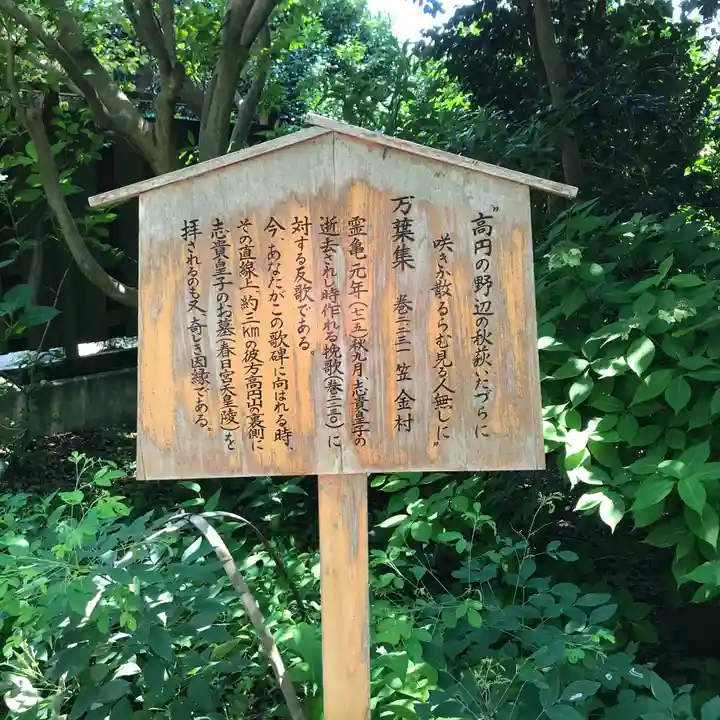 "高円の野辺の秋萩いたづらに
咲きか散るらむ見る人無しに"
万葉集 巻二・二三一 笠 金村
霊亀元年(七一五)秋九月、志貴皇子の
逝去されし時作れる挽歌(巻二・二三〇)に
対する反歌である。
今、あなたがこの歌碑に向はれる時、
その直線上、約三㎞の彼方高円山の裏側に
志貴皇子のお墓(春日宮天皇陵)を
拝されるのも又、奇しき因縁である。